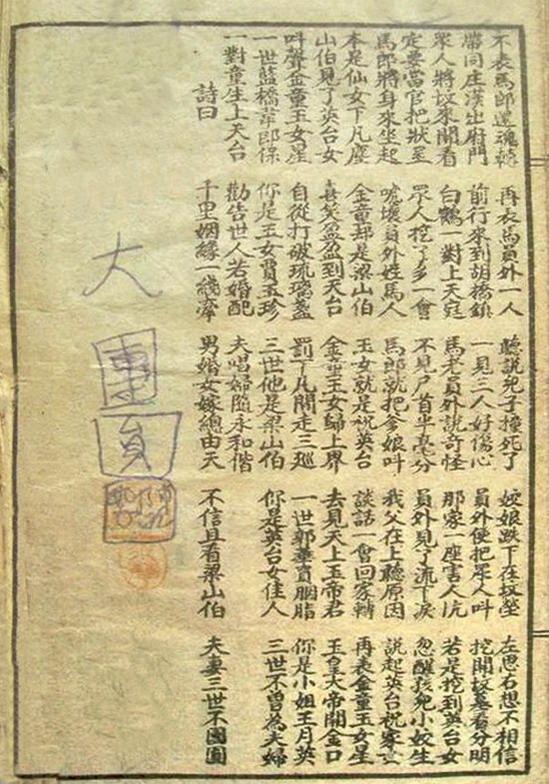 不表馬郎還魂轉 再表馬員外一人 聽說兒子撞死了 姣娘跌下在坟塋 左思右想不相信
帶同庄漢出府門 前行來到胡橋鎮 一見三人好傷心 員外便把眾人叫 挖開坟墓看分明
眾人將坟來開看 白鶴一對上天庭 馬老員外說奇怪 那家一座害人坑 若是挖到英台女
定要當官把狀呈 眾人挖了多一會 不見尸首半毫分 員外見了流下淚 忽醒孩兒小姣生
馬郎將身來坐起 唬壞員外姓馬人 馬郎就把爹娘叫 我父在上聽原因 說起英台祝家
本是仙女下凡塵 金童却是梁山伯 玉女就是祝英台 談話一會回家轉 再表金童玉女星
山伯見了英台女 喜笑盈盈到天台 金童玉女歸上界 去見天上玉帝君 玉皇大帝開金口
叫聲金童玉女星 自從打破琉璃盞 罰下凡間走三廵 一世郭華賣胭脂 你是小姐王月英
一世藍橋韋郎保 你是玉女賈玉珍 三世他是梁山伯 你是英台女佳人 三世不曾為夫婦
一對童生上天台 勸告世人若婚配 夫唱婦隨永和偕
詩曰 千里姻緣一綫牽 男婚女嫁總由天 不信且看梁山伯 夫妻三世不團圓
大